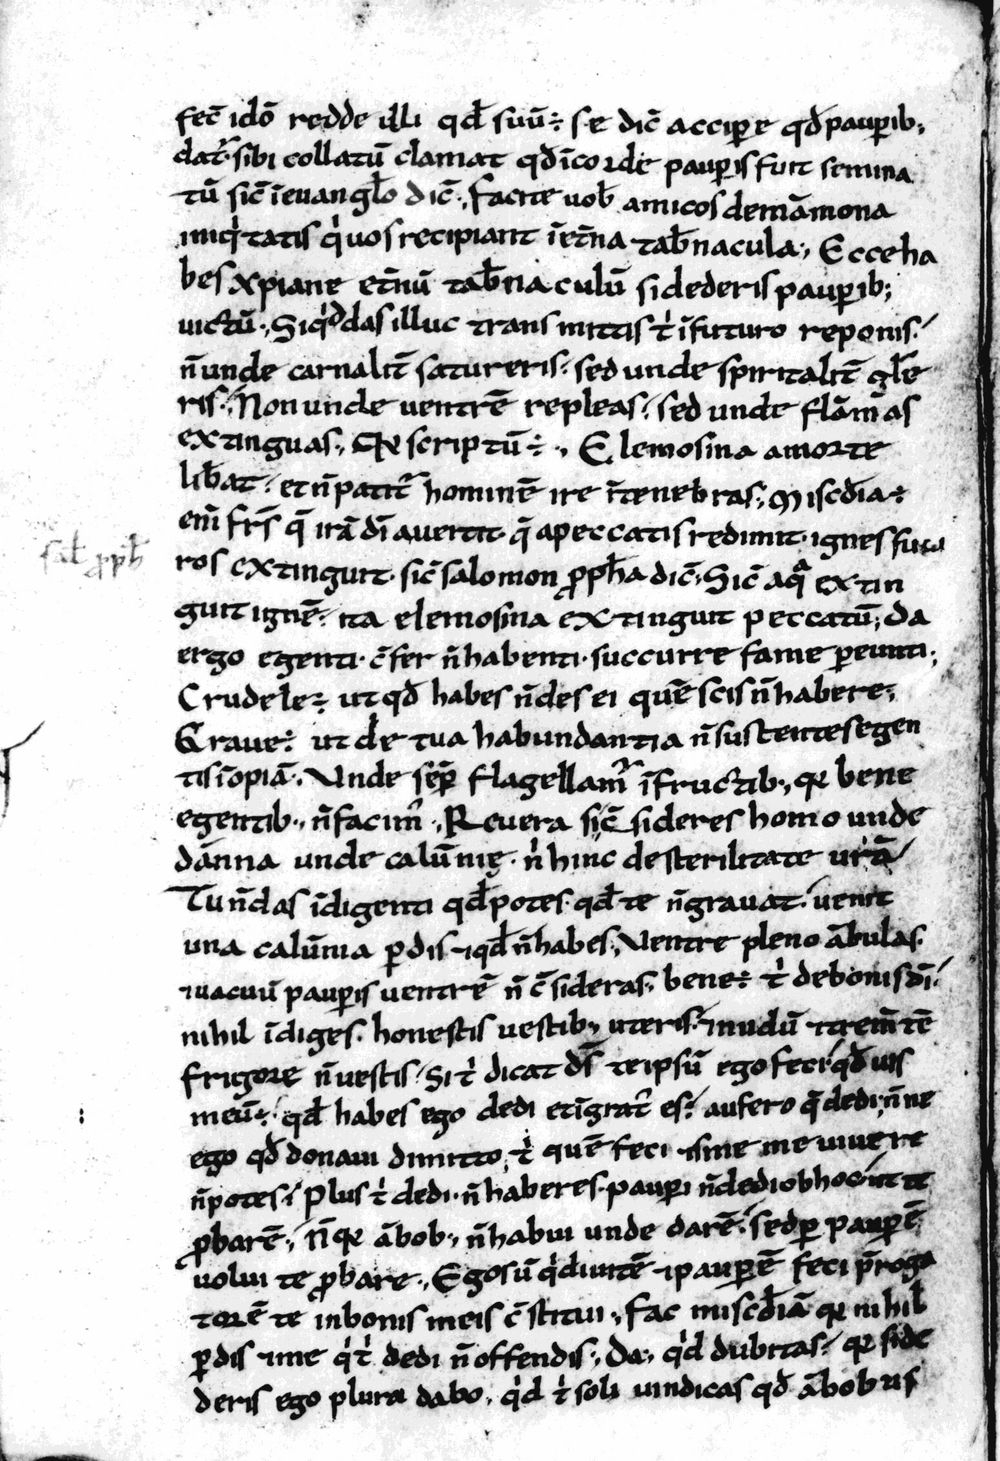 fec̄ idō redde illi qd̄ suū÷ se dic̄ accipꝑe qd̄ pauꝑib;
dat᷑ sibi collatū clamat qd̄ īcorde pauꝑis fuit semina
tū sic̄ īevangl̄o dic̄., facite vob̄ amicos demāmona
iniq̇tatis q̇ vos recipiant īet̄na tab̄nacula., Ecce ha
bes xpiane et̄nū tab̄naculū si dederis pauꝑib;
victū., Siq̇d das illuc transmittis t̄ īfuturo reponis.
n̄ unde carnalit̄ satureris. sed unde spiritalit̄ gl̄e
ris., Non unde ventrē repleas. sed unde flāmas
extinguas., Qꝛ scriptū÷., Elemosina amorte
lib̄at. et n̄ patit᷑ hominē ire ītenebras., Miscd̄ia÷
em̄ fr̄s q̄ irā dī avertit. q̄ apeccatis redimit. ignes futu
sal̄ ꝓph̄
ros extinguit. sic̄ salomon ꝓph̄a dic̄., Sic̄ aqᷓ extin
guit ignē. ita elemosina extinguit peccatū; da
ergo egenti. c̄fer n̄habenti. succurre fame ꝑeunti;
Crudele÷ ut qd̄ habes n̄des ei quē scis n̄habere;
Grave÷ ut de tua habundantia n̄sustentes egen
tis īopiā. Unde sep̄ flagellam᷑ īfructib., qꝛ bene
egentib., n̄facim᷒., Revera sic̄ sideres homo unde
dāna unde calūnię. n̄ hinc de sterilitate ur̄ā
Tu n̄das īdigenti qd̄ potes. qd̄ te n̄gravat. venit
una calūnia ꝑdis ⁊qd̄ n̄habes., Ventre pleno ābulas.
⁊vacuū pauꝑis ventrē n̄ c̄sideras., bene÷ t̄ de bonis dī.
nihil īdiges. honestis vestib., uteris. ⁊nudū ⁊trem̄tē
frigore n̄vestis. Si t̄ dicat ds̄ teipsū ego feci qd̄ vis
meū÷. qd̄ habes ego dedi et īgrat᷒ es. aufero q̄ dedi; n̄ne
ego qd̄ donavi dimitto, t̄ quē feci ⁊sine me vivere
n̄potes. Plus t̄ dedi. n̄haberes. pauꝑi n̄dedi obhoc ut te
ꝓbarē., n̄ qꝛ ābob., n̄habui unde darē. sed ꝑ pauꝑē
volui te ꝓbare., Ego sū q̇ divitē ⁊pauꝑē feci p̄roga
torē te inbonis meis c̄stitui., Fac miscd̄iā qꝛ nihil
ꝑdis ⁊me q̇ t̄ dedi n̄offendis., Da., q̇d dubitas. qꝛ si de
deris ego plura dabo., q̇d t̄ soli vindicas qd̄ ābobus